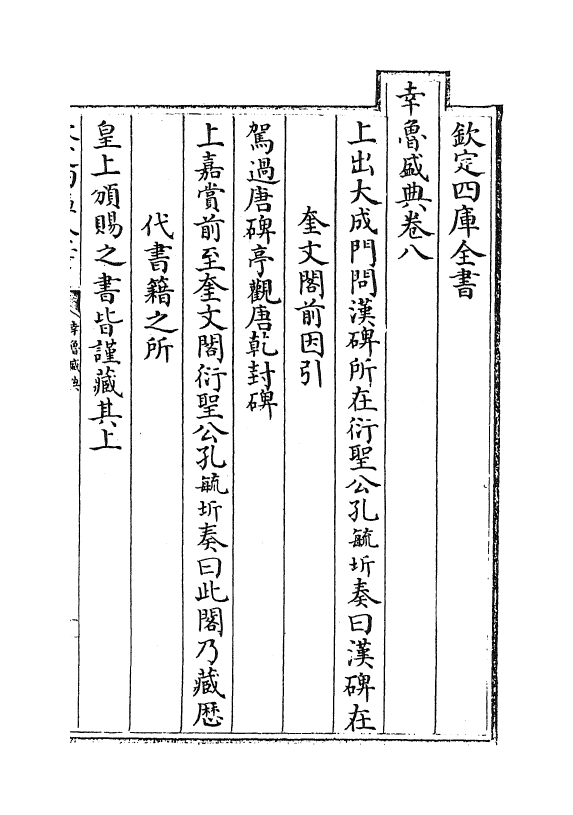 欽定四庫全書
幸魯盛典卷八
上出大成門問漢碑所在衍聖公孔毓圻奏曰漢碑在
奎文閣前因引
駕過唐碑亭觀唐乾封碑
上嘉賞前至奎文閣衍聖公孔毓圻奏曰此閣乃藏歴
代書籍之所
皇上頒賜之書皆謹藏其上
幸魯盛典